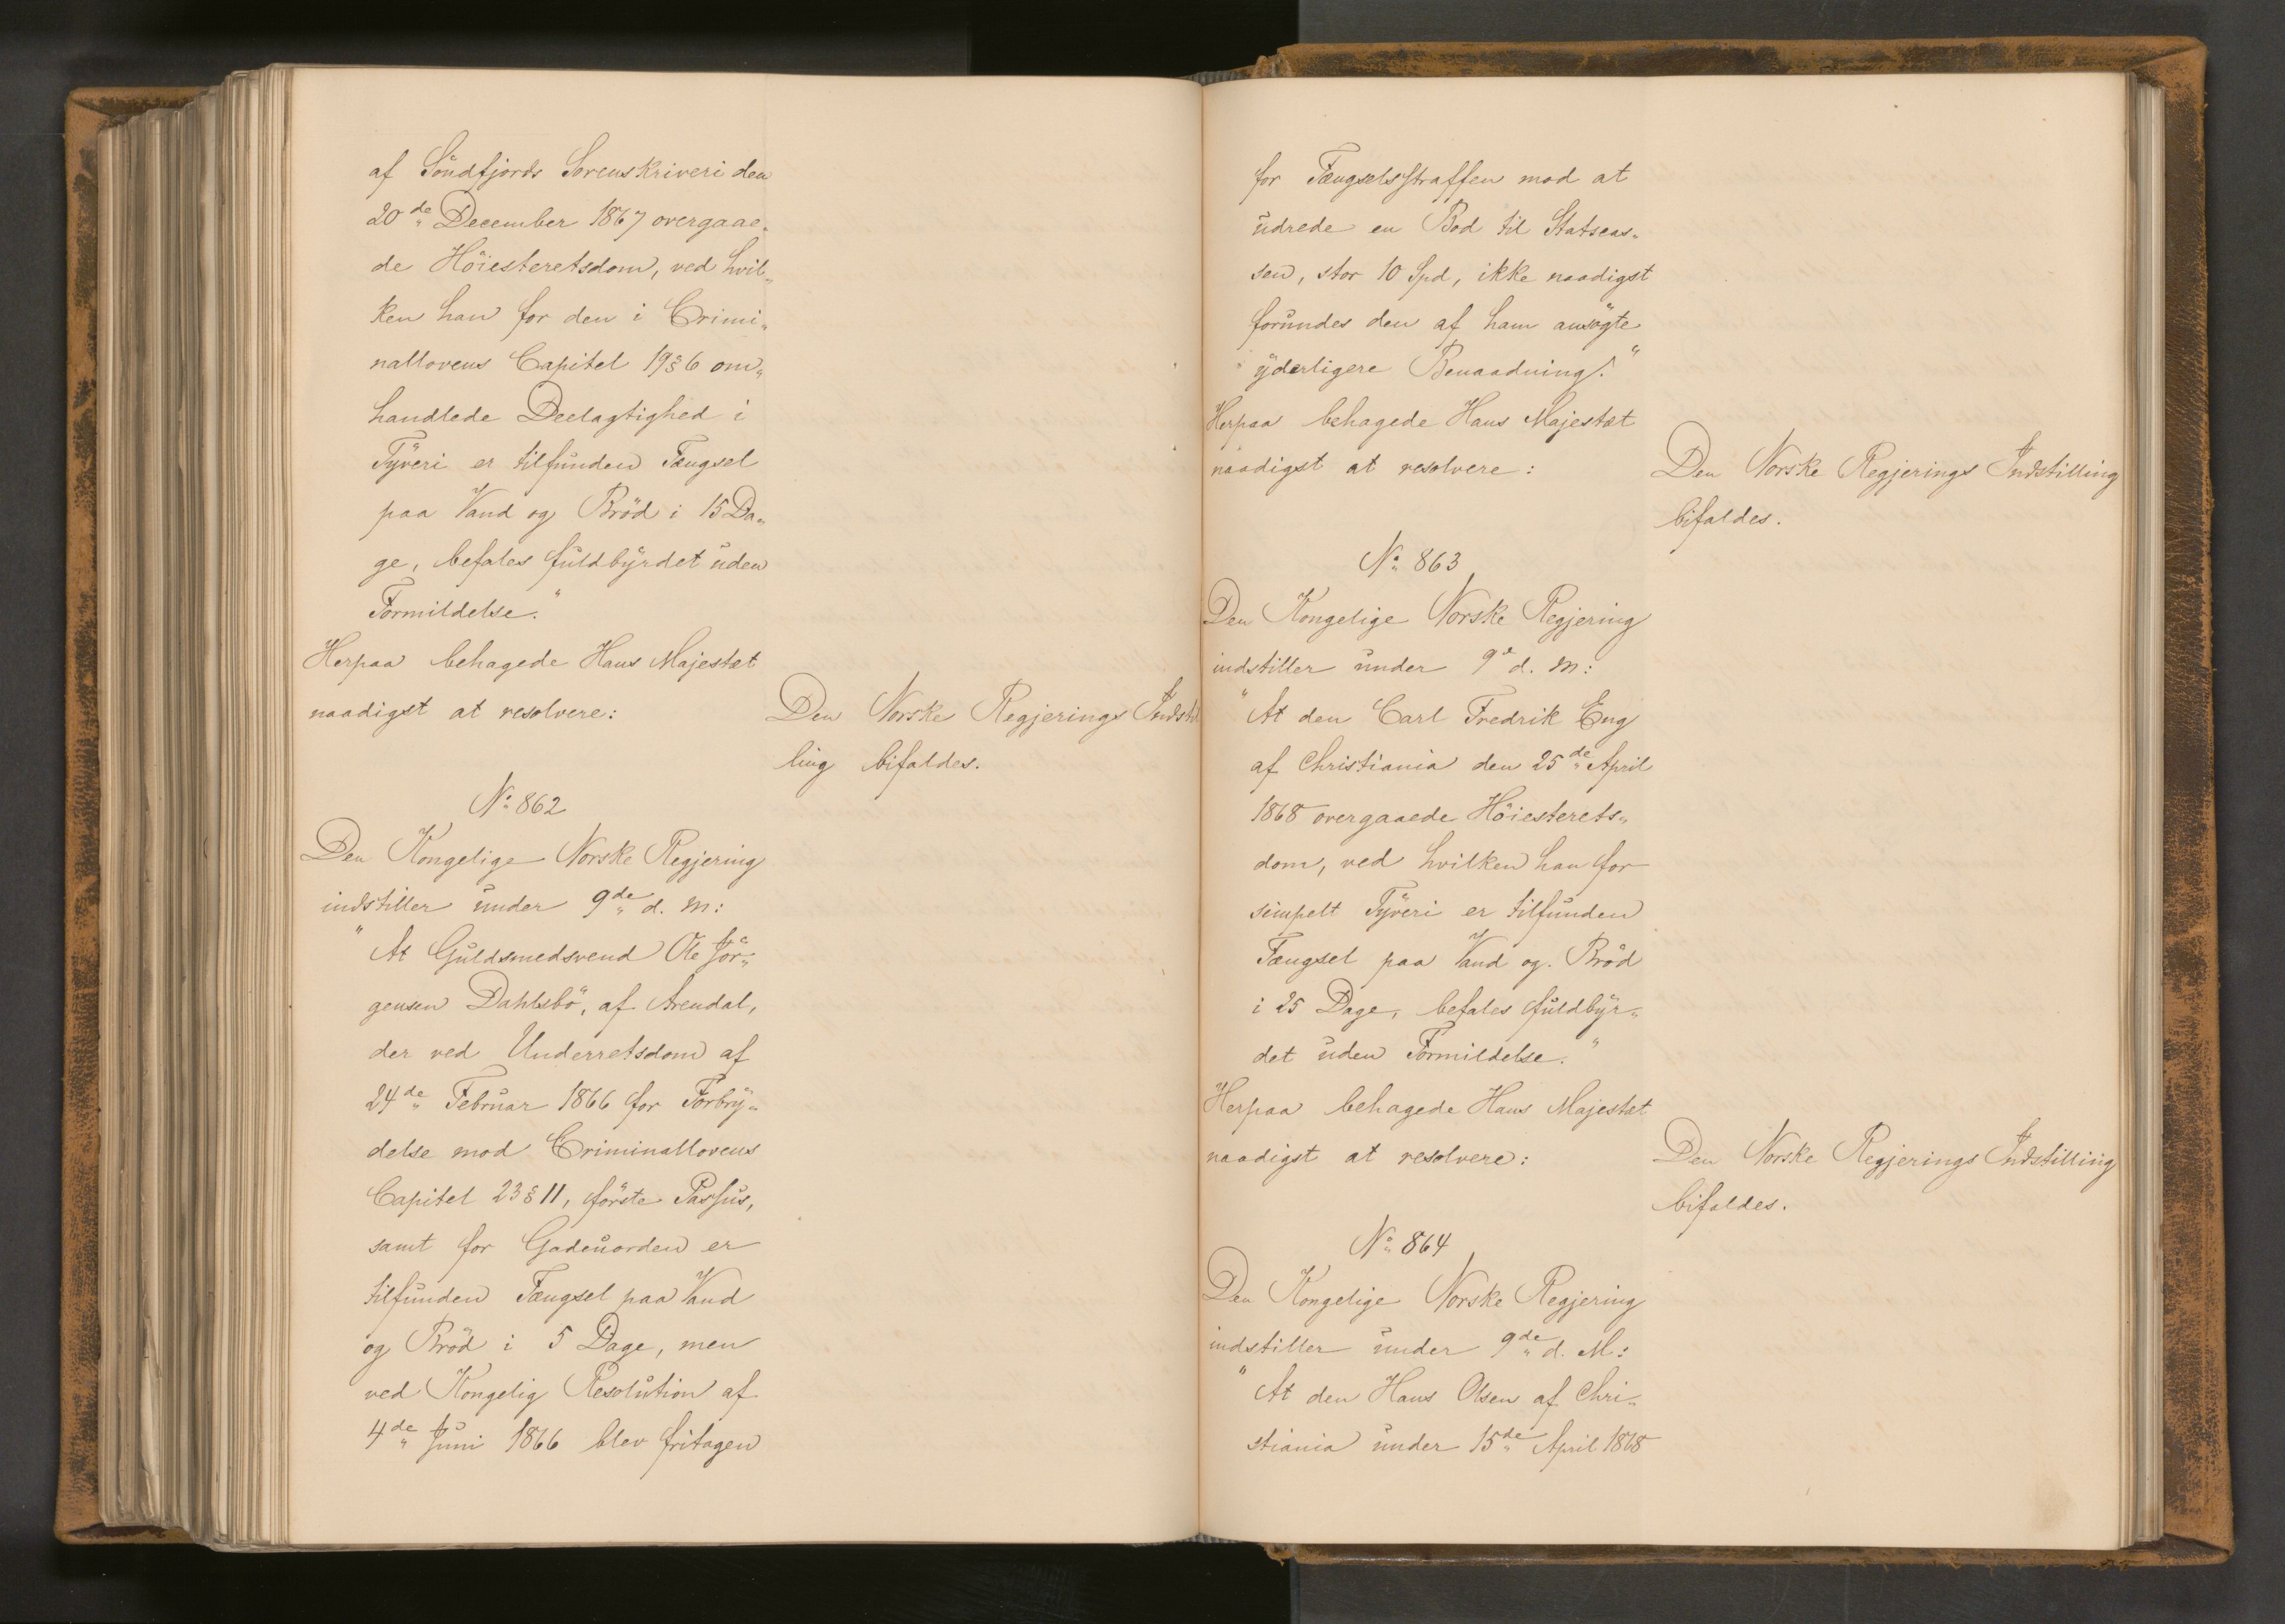 af Söndfjords Sorenskriveri den
20de December 1867 overgaae„
de Höiesteretsdom, ved hvil„
ken han for den i Crimi„
nallovens Capitel 19 § 6 om„
handlede Deelagtighed i
Tyveri er tilfunden Fængsel
paa Vand og Bröd i 15 Da„
ge, befales fuldbyrdet uden
Formildelse."
Herpaa behagede Hans Majestæt
naadigst at resolvere:
Den Norske Regjerings Indstil
ling bifaldes.
No 862
Den Kongelige Norske Regjering
indstiller under 9de d. M:
"At Guldsmedsvend Ole Jör„
gensen Dahlsbö, af Arendal,
der ved Underretsdom af
24de Februar 1866 for Forbry„
delse mod Criminallovens
Capitel 23 § 11, förste Passus,
samt for Gadeuorden er
tilfunden Fængsel paa Vand
og Bröd i 5 Dage, men
ved Kongelig Resolution af
4de Juni 1866 blev fritagen
for Fængselsstraffen mod at
udrede en Bod til Statscas„
sen, stor 10 Spd, ikke naadigst
forundes den af ham ansögte
yderligere Benaadning."
Herpaa behagede Hans Majestæt
naadigst at resolvere:
Den Norske Regjerings Indstilling
bifaldes.
No 863
Den Kongelige Norske Regjering
indstiller under 9de d. M:
"At den Carl Fredrik Eng
af Christiania den 25de April
1868 overgaaede Höiesterets„
dom, ved hvilken han for
simpelt Tyveri er tilfunden
Fængsel paa Vand og Bröd
i 25 Dage, befales fuldbyr„
det uden Formildelse."
Herpaa behagede Hans Majestæt
naadigst at resolvere:
Den Norske Regjerings Indstilling
bifaldes.
No 864
Den Kongelige Norske Regjering
indstiller under 9de d. M:
"At den Hans Olsen af Chri„
stiania under 15de April 1868